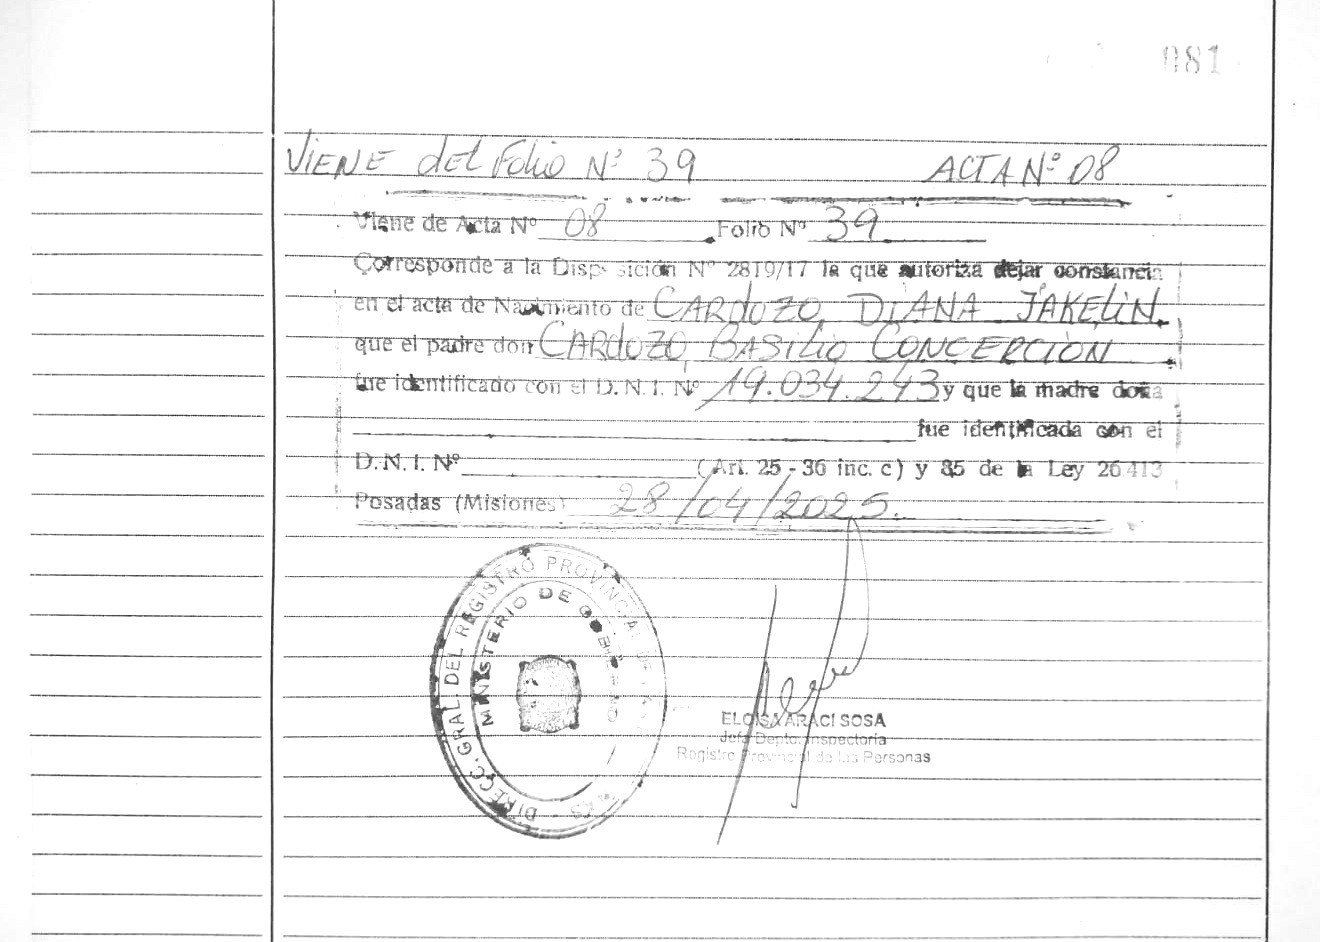 081
VIENE del Folio Nº 39 ACTA Nº 08
Viene de Acta Nº 08 Folio Nº 39
Corresponde a la Disposición Nº 2819/17 la que autoriza dejar constancia
en el acta de Nacimiento de CARDOZO, DIANA JAKELIN.
que el padre don CARDOZO, BASILIO CONCERCION
fue identificado con el D. N. I. Nº 19.034.243 y que la madre doña
fue identificada con el
D. N. I. Nº (Art. 25 - 36 inc. c) y 85 de la Ley 26413
Posadas (Misiones) 28/04/2025.
DIRECC. GRAL. DEL REGISTRO PROVINCIAL DE LAS
MINISTERIO DE GOBIERNO
ELOISA ARACI SOSA
Jefa Depto. Inspectoria
Registro Provincial de las Personas